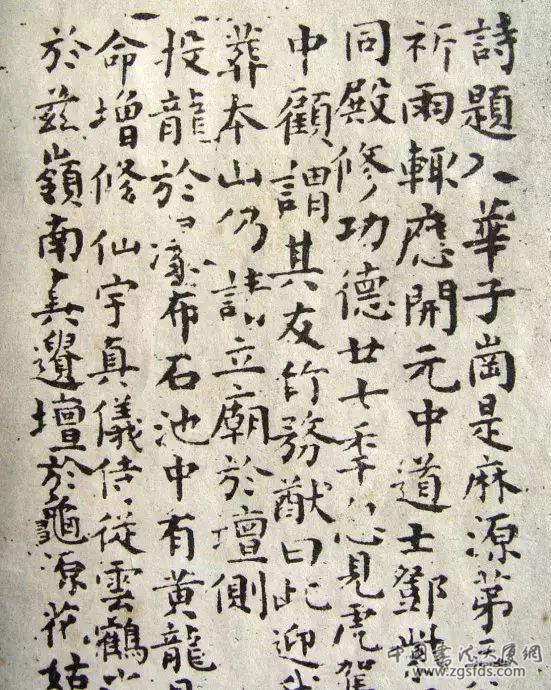 詩題入華子崗是麻源第三
祈雨輒應開元中道士鄧紫
同殿修功德廿七年忽見虎駕
中顧謂其友竹務猷曰此迎我
葬本山仍請立廟於壇側
投龍於瀑布石池中有黃龍見
命增修仙宇真儀侍從雲鶴
於茲嶺南真遺壇於龜源花姑
中国书法大厦网
www.zgsfds.com